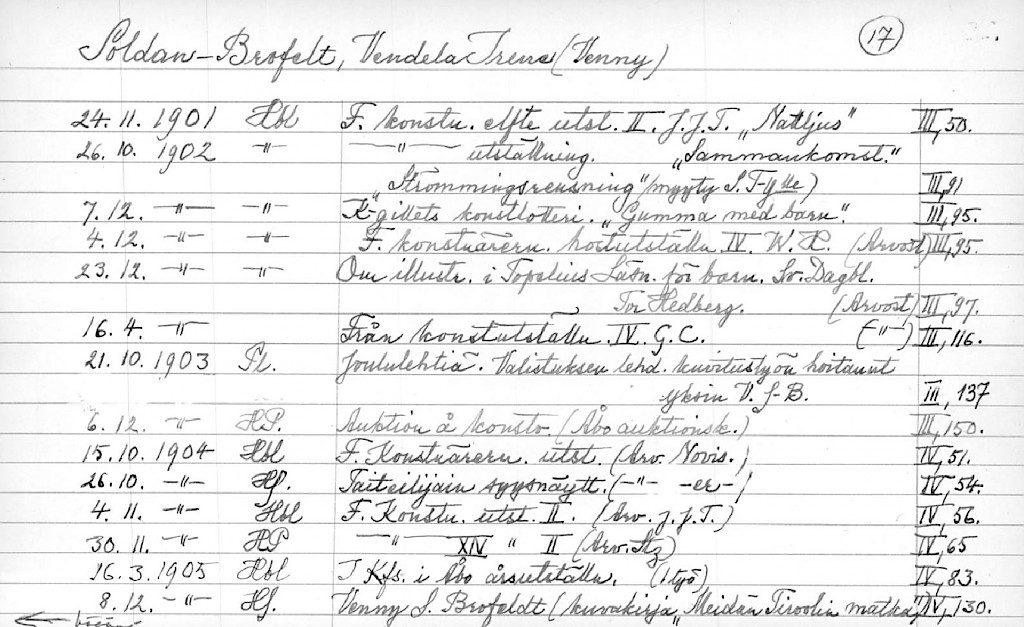 17
Soldan-Brofelt, Vendela Irene (Venny)
24.11.1901 Hbl F. konstn. elfte utst. II. J.J.T. „Nattljus" III, 50.
26.10. 1902 -"- —"— utställning. „Sammankomst."
„Strömmingsrensning" (myyty S. T-g lle) III, 91
7.12. -"- -"- K-gillets konstlotteri. „Gumma med barn". III, 95.
4.12. -"- -"- F. konstnärern. höstutställn. IV. W. K. (Arvost) III, 95.
23.12. -"- -"- Om illustr. i Topelius Läsn. för barn. Sv. Dagbl.
Tor Hedberg. (Arvost) III, 97.
16.4. -"- Från konstutställn. IV. G. C. (-"-) III, 116.
21.10.1903 Pl. Joululehtiä. Valistuksen lehd. kuvitustyön hoitanut
yksin V. S-B. III, 137
6.12. -"- HP. Auktion å konstv. (Åbo auktionsk.) III, 150.
15.10.1904 Hbl F. Konstnärern. utst. (Arv. Novis.) IV, 51.
26.10. -"- Hf. Taiteilijain syysnäytt. (-"- -er-) IV, 54.
4.11. -"- Hbl F. Konstn. utst. II. (Arv. J.J.T.) IV, 56.
30.11. -"- HP —"— XIV " II (Arv. Stz) IV, 65
16.3.1905 Hbl I Kfs. i Åbo årsutställn. (1 työ) IV, 83.
8.12. -"- Hf. Venny S. Brofeldt (kuvakirja „Meidän Tiroolin matka", IV, 130.